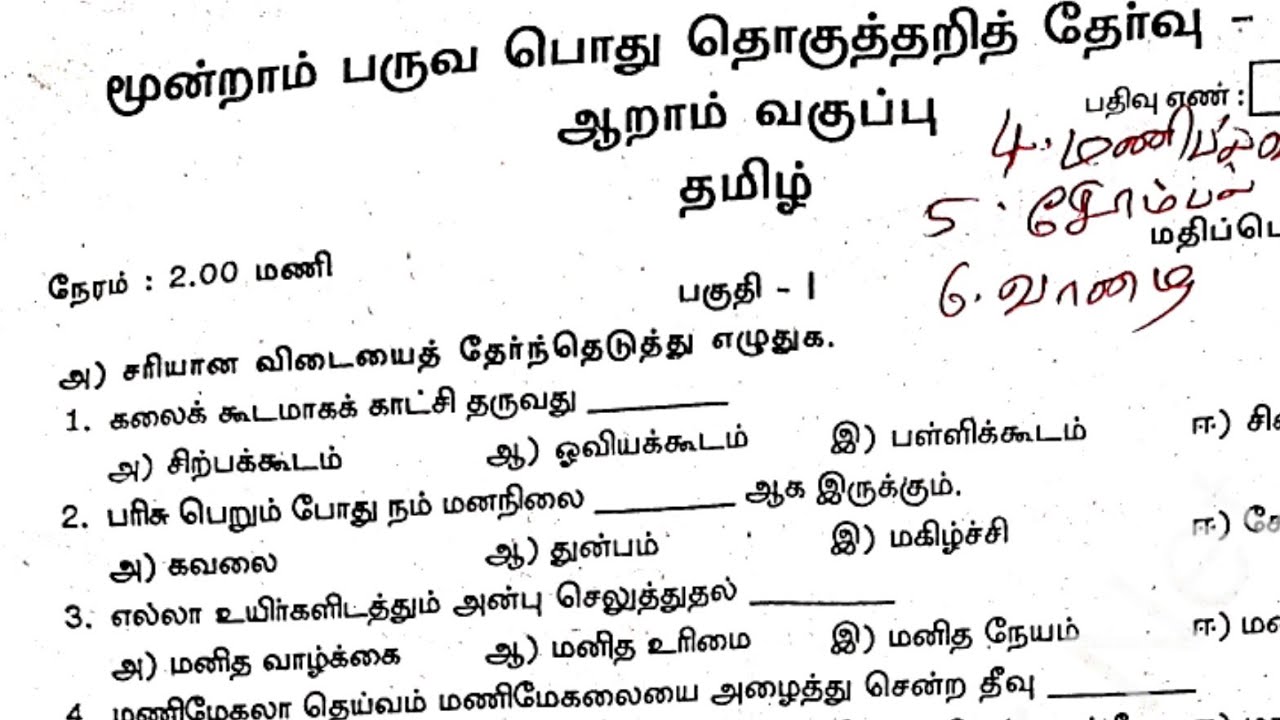 மூன்றாம் பருவ பொது தொகுத்தறித் தேர்வு -
ஆறாம் வகுப்பு
பதிவு எண் :
தமிழ்
4. மணிபல்ல
5. சோம்பல்
மதிப்பெ
நேரம் : 2.00 மணி
பகுதி - I
6. வாழை
அ) சரியான விடையைத் தேர்ந்தெடுத்து எழுதுக.
1. கலைக் கூடமாகக் காட்சி தருவது ________
அ) சிற்பக்கூடம் ஆ) ஓவியக்கூடம் இ) பள்ளிக்கூடம் ஈ) சி
2. பரிசு பெறும் போது நம் மனநிலை ________ ஆக இருக்கும்.
அ) கவலை ஆ) துன்பம் இ) மகிழ்ச்சி ஈ) சோ
3. எல்லா உயிர்களிடத்தும் அன்பு செலுத்துதல் ________
அ) மனித வாழ்க்கை ஆ) மனித உரிமை இ) மனித நேயம் ஈ) ம
4. மணிமேகலா தெய்வம் மணிமேகலையை அழைத்து சென்ற தீவு ________